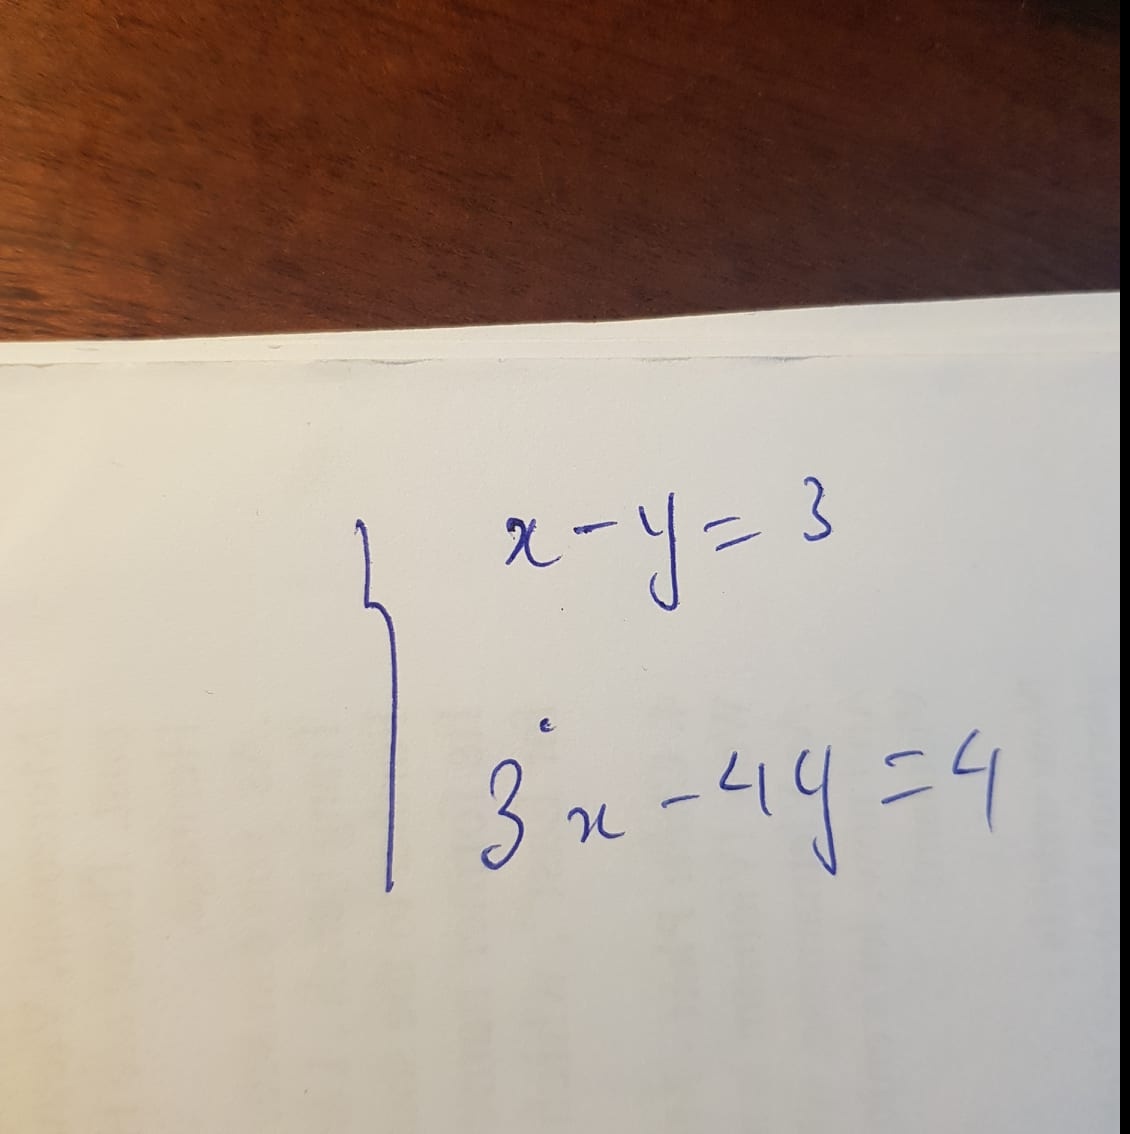 x - y = 3
3x - 4y = 4